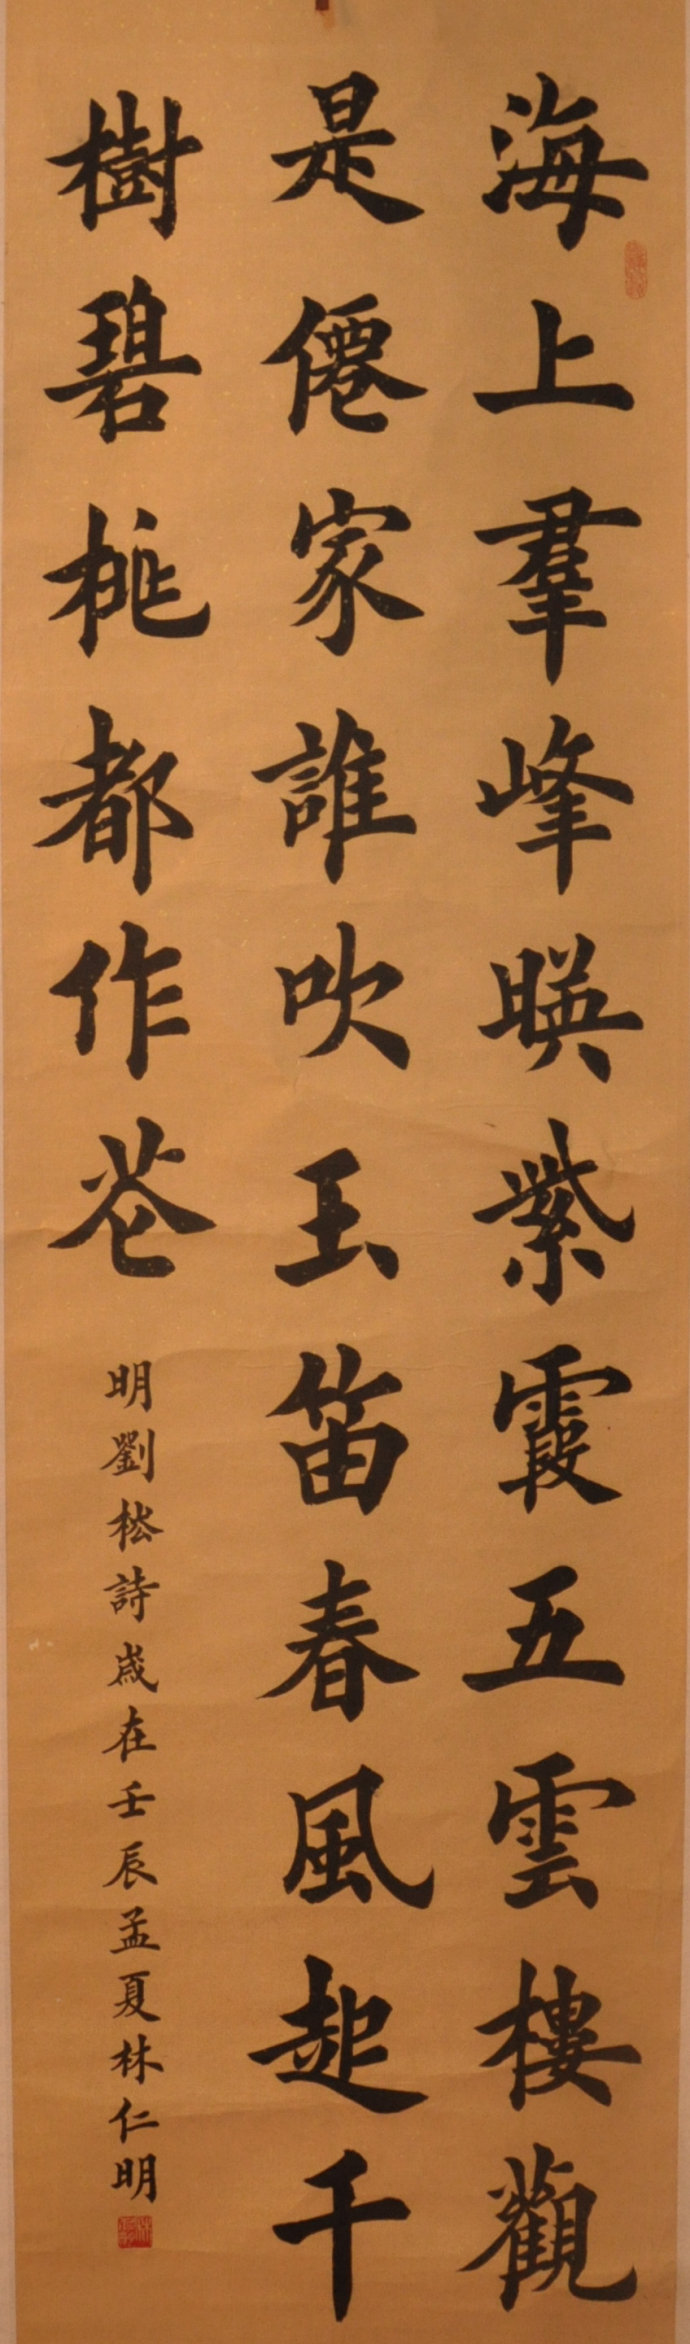 海上羣峰暎紫霞五雲樓觀
是僊家誰吹玉笛春風起千
樹碧桃都作花
明劉崧詩歲在壬辰孟夏林仁明